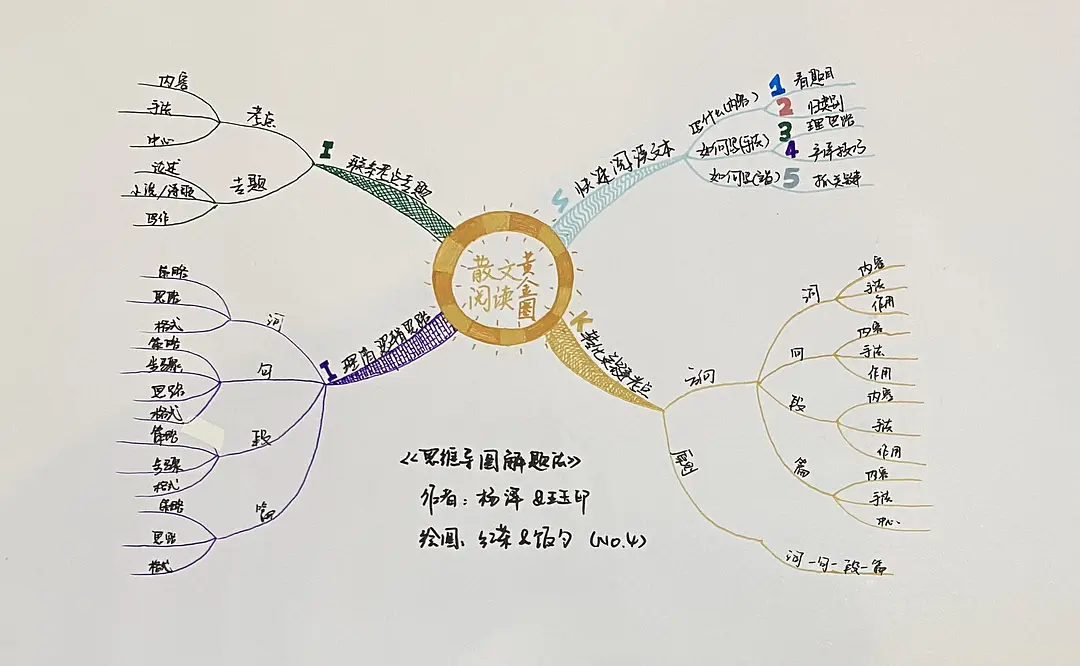 散文
阅读
黄金圈
S 快速阅读文本
写什么(内容)
1 看题目
2 归类别
如何写(手法)
3 理思路
4 手译技巧
5 抓关键
K 转化文段考点
词
内容
手法
作用
句
内容
手法
作用
段
内容
手法
作用
篇
内容
手法
中心
词一句一段一篇
I 理清逻辑思路
词
策略
思路
格式
句
策略
步骤
思路
格式
段
策略
步骤
格式
篇
策略
思路
格式
I 联系考点专题
考点
内容
手法
中心
专题
论述
写作
《思维导图解题法》
作者:杨泽&王玉印
绘图:红茶&饭勺(NO.4)